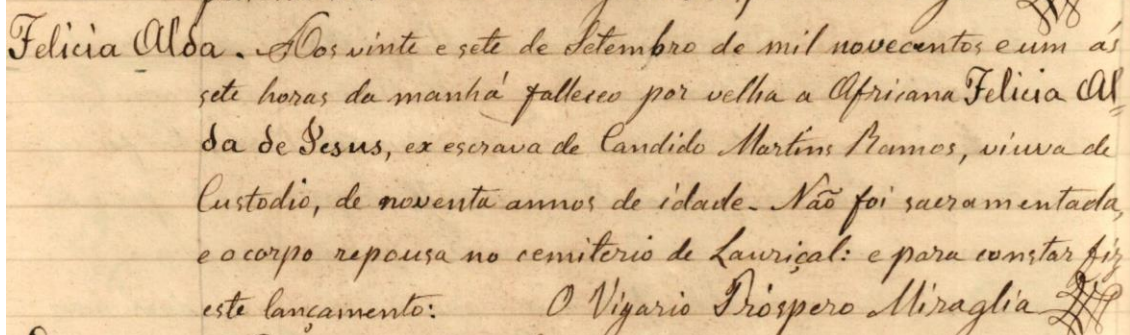 Felicia Alda. Aos vinte e sete de Setembro de mil novecentos e um ás
sete horas da manhã falleceo por velha a Africana Felicia Al=
da de Jesus, ex escrava de Candido Martins Ramos, viuva de
Custodio, de noventa annos de idade. Não foi sacramentada,
e o corpo repousa no cemiterio de Lauriçal: e para constar fiz
este lançamento: O Vigario Próspero Miraglia